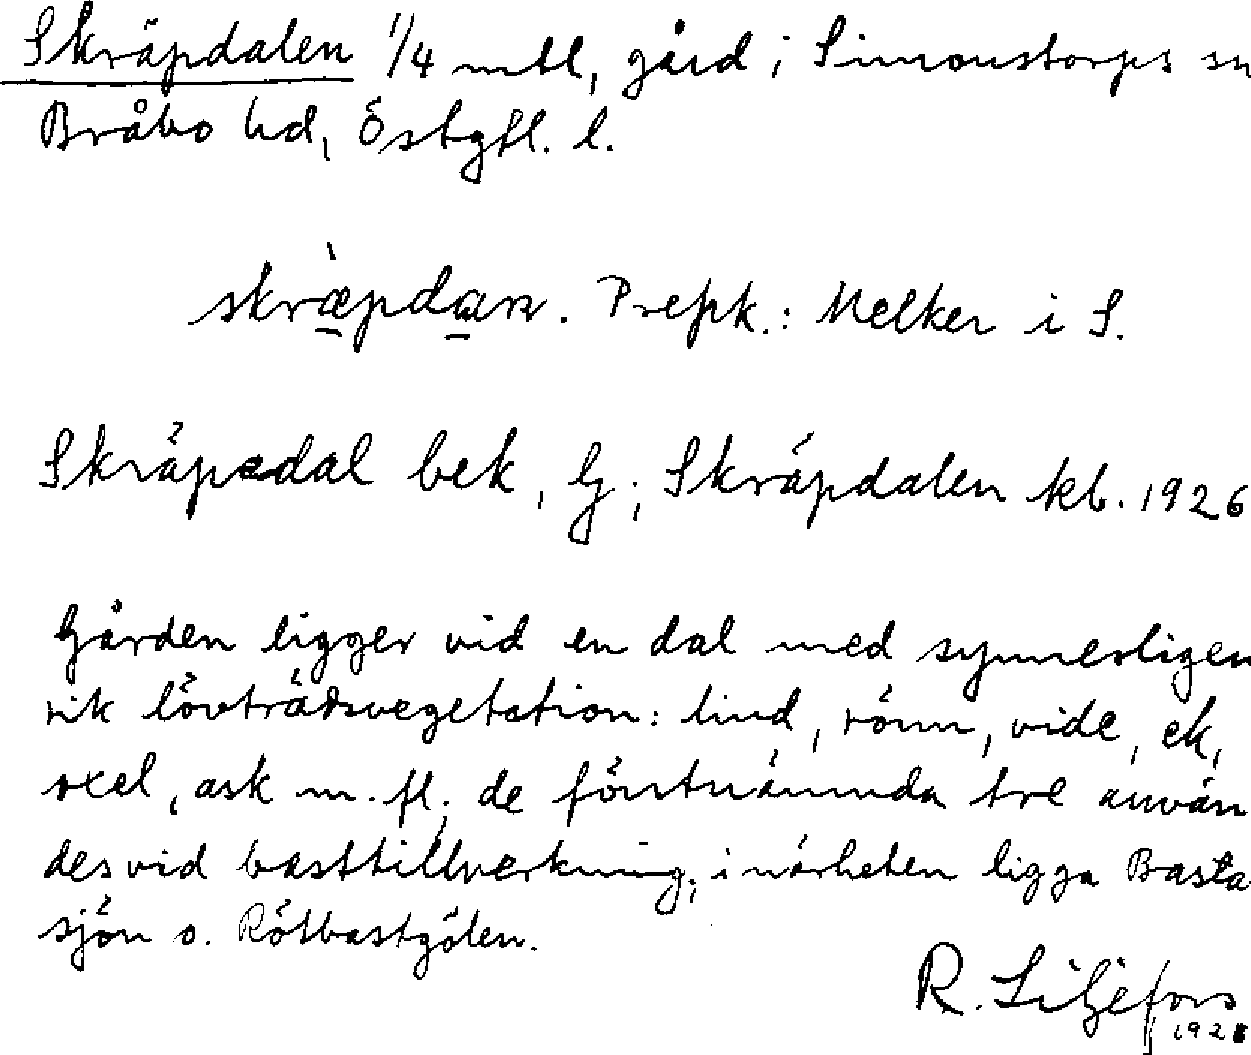 Skräpdalen 1/4 mtl, gård i Simonstorps sn
Bråbo hd, Östgtl. l.
skræ̀pdan. Prepk.: Melker i S.
Skräpedal bek, G; Skräpdalen kb. 1926
Gården ligger vid en dal med synnerligen
rik lövträdsvegetation: lind, rönn, vide, ek,
oxel, ask m. fl.; de förstnämnda tre använ
des vid basttillverkning; i närheten ligga Basta
sjön o. Rötbastgölen.
R. Liljefors